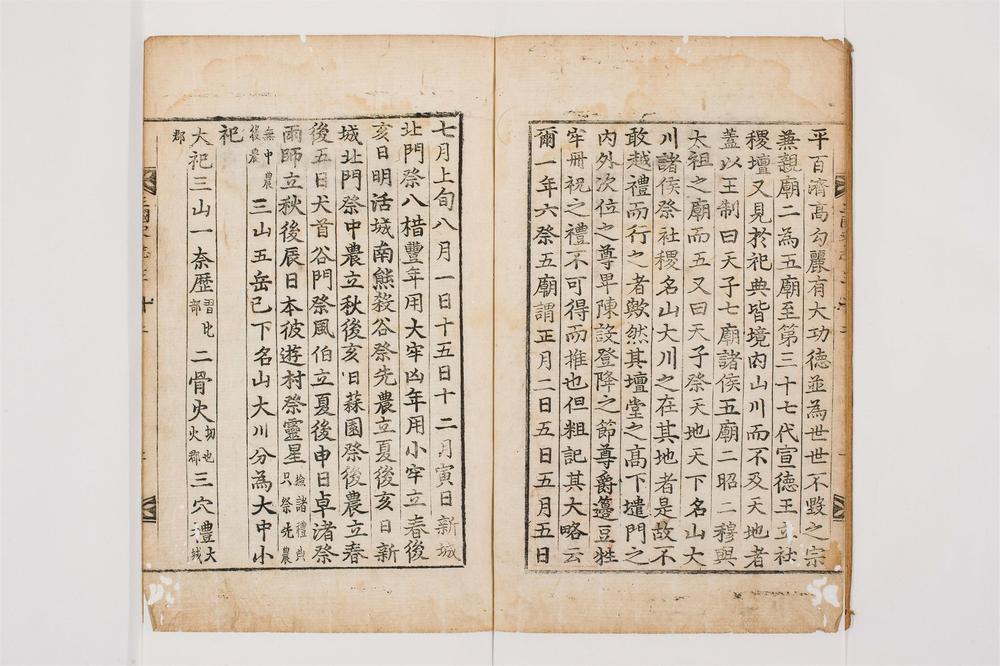 平百濟高勾麗有大功德並為世世不毀之宗
兼親廟二為五廟至第三十七代宣德王立社
稷壇又見於祀典皆境內山川而不及天地者
蓋以王制曰天子七廟諸侯五廟二昭二穆與
太祖之廟而五又曰天子祭天地天下名山大
川諸侯祭社稷名山大川之在其地者是故不
敢越禮而行之者歟然其壇堂之高下壝門之
內外次位之尊卑陳設登降之節尊爵籩豆牲
牢冊祝之禮不可得而推也但粗記其大略云
爾一年六祭五廟謂正月二日五日五月五日
七月上旬八月一日十五日十二月寅日新城
北門祭八楷豐年用大牢凶年用小牢立春後
亥日明活城南熊殺谷祭先農立夏後亥日新
城北門祭中農立秋後亥日蒜園祭後農立春
後五日犬首谷門祭風伯立夏後申日卓渚祭
雨師立秋後辰日本彼遊村祭靈星撿諸禮典只祭先農
無中農後農三山五岳已下名山大川分為大中小
祀
大祀三山一奈歷習比部二骨火切也火郡三穴禮大城
郡